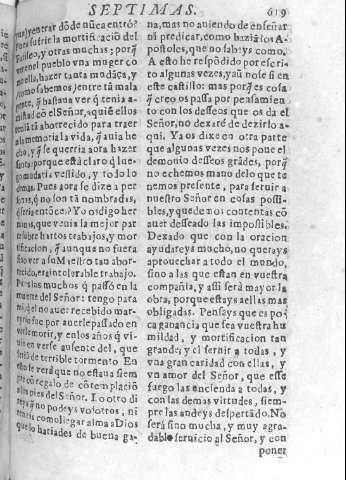 SEPTIMAS. 619
y entrar dōde nũca entrò?
sufrir la mortificaciō del
Fariseo, y otras muchas; porq̃
ver en el pueblo vna muger co
mo ella, hazer tanta mudāça, y
como sabemos, entre tā mala
gente, q̃ bastaua ver q̃ tenia a-
mistad cō el Señor, a quiē ellos
teniā tā aborrecido para traer
a la memoria la vida, q̃ auia he
cho, y q̃ se querria aora hazer
santa: porque està claro q̃ lue-
go mudaria vestido, y todo lo
demas. Pues aora se dize a per
sonas, q̃ no son tā nombradas,
q̃ seria entōces? Yo os digo her
manas, que venia la mejor par
te sobre hartos trabajos, y mor
tificacion, q̃ aunque no fuera
sino ver a su Maestro tan abor-
recido, era intolerable trabajo.
Pues los muchos q̃ passò en la
muerte del Señor: tengo para
mi, q̃ el no auer recebido mar-
tyrio fue por auerle passado en
ver morir, y en los años q̃ vi-
uio en verse ausente del, que
seriā de terrible tormento. En
esto se verà que no estaua siem
pre cō regalo de cōtemplaciō
a los pies del Señor. Lo otro di
reys q̃ no podeys vosotros, ni
teneis como llegar almas a Dios
que lo hariades de buena ga-
na, mas no auiendo de enseñar
ni predicar, como hazià los A-
postoles, que no sabeys como.
A esto he respōdido por escri-
to algunas vezes, y aū no sè si en
este castillo: mas porq̃ es cosa
q̃ creo os passa por pensamien
to con los desseos que os da el
Señor, no dexarè de dezirlo a-
qui. Ya os dixe en otra parte
que algunas vezes nos pone el
demonio desseos grādes, porq̃
no echemos mano delo que te
nemos presente, para seruir a
nuestro Señor en cosas possi-
bles, y quedemos contentas cō
auer desseado las impossibles.
Dexado que con la oracion
ayudareys mucho, no querays
aprouechar a todo el mundo,
sino a las que estan en vuestra
compañia, y assi serà mayor la
obra, porque estays a ellas mas
obligadas. Pensays que es po-
ca ganancia que sea vuestra hu
mildad, y mortificacion tan
grande, y el seruir a todas, y
vna gran caridad con ellas, y
vn amor del Señor, que esse
fuego las encienda a todas, y
con las demas virtudes, siem-
pre las andeys despertādo. No
serà sino mucha, y muy agra-
dable seruicio al Señor, y con
poner